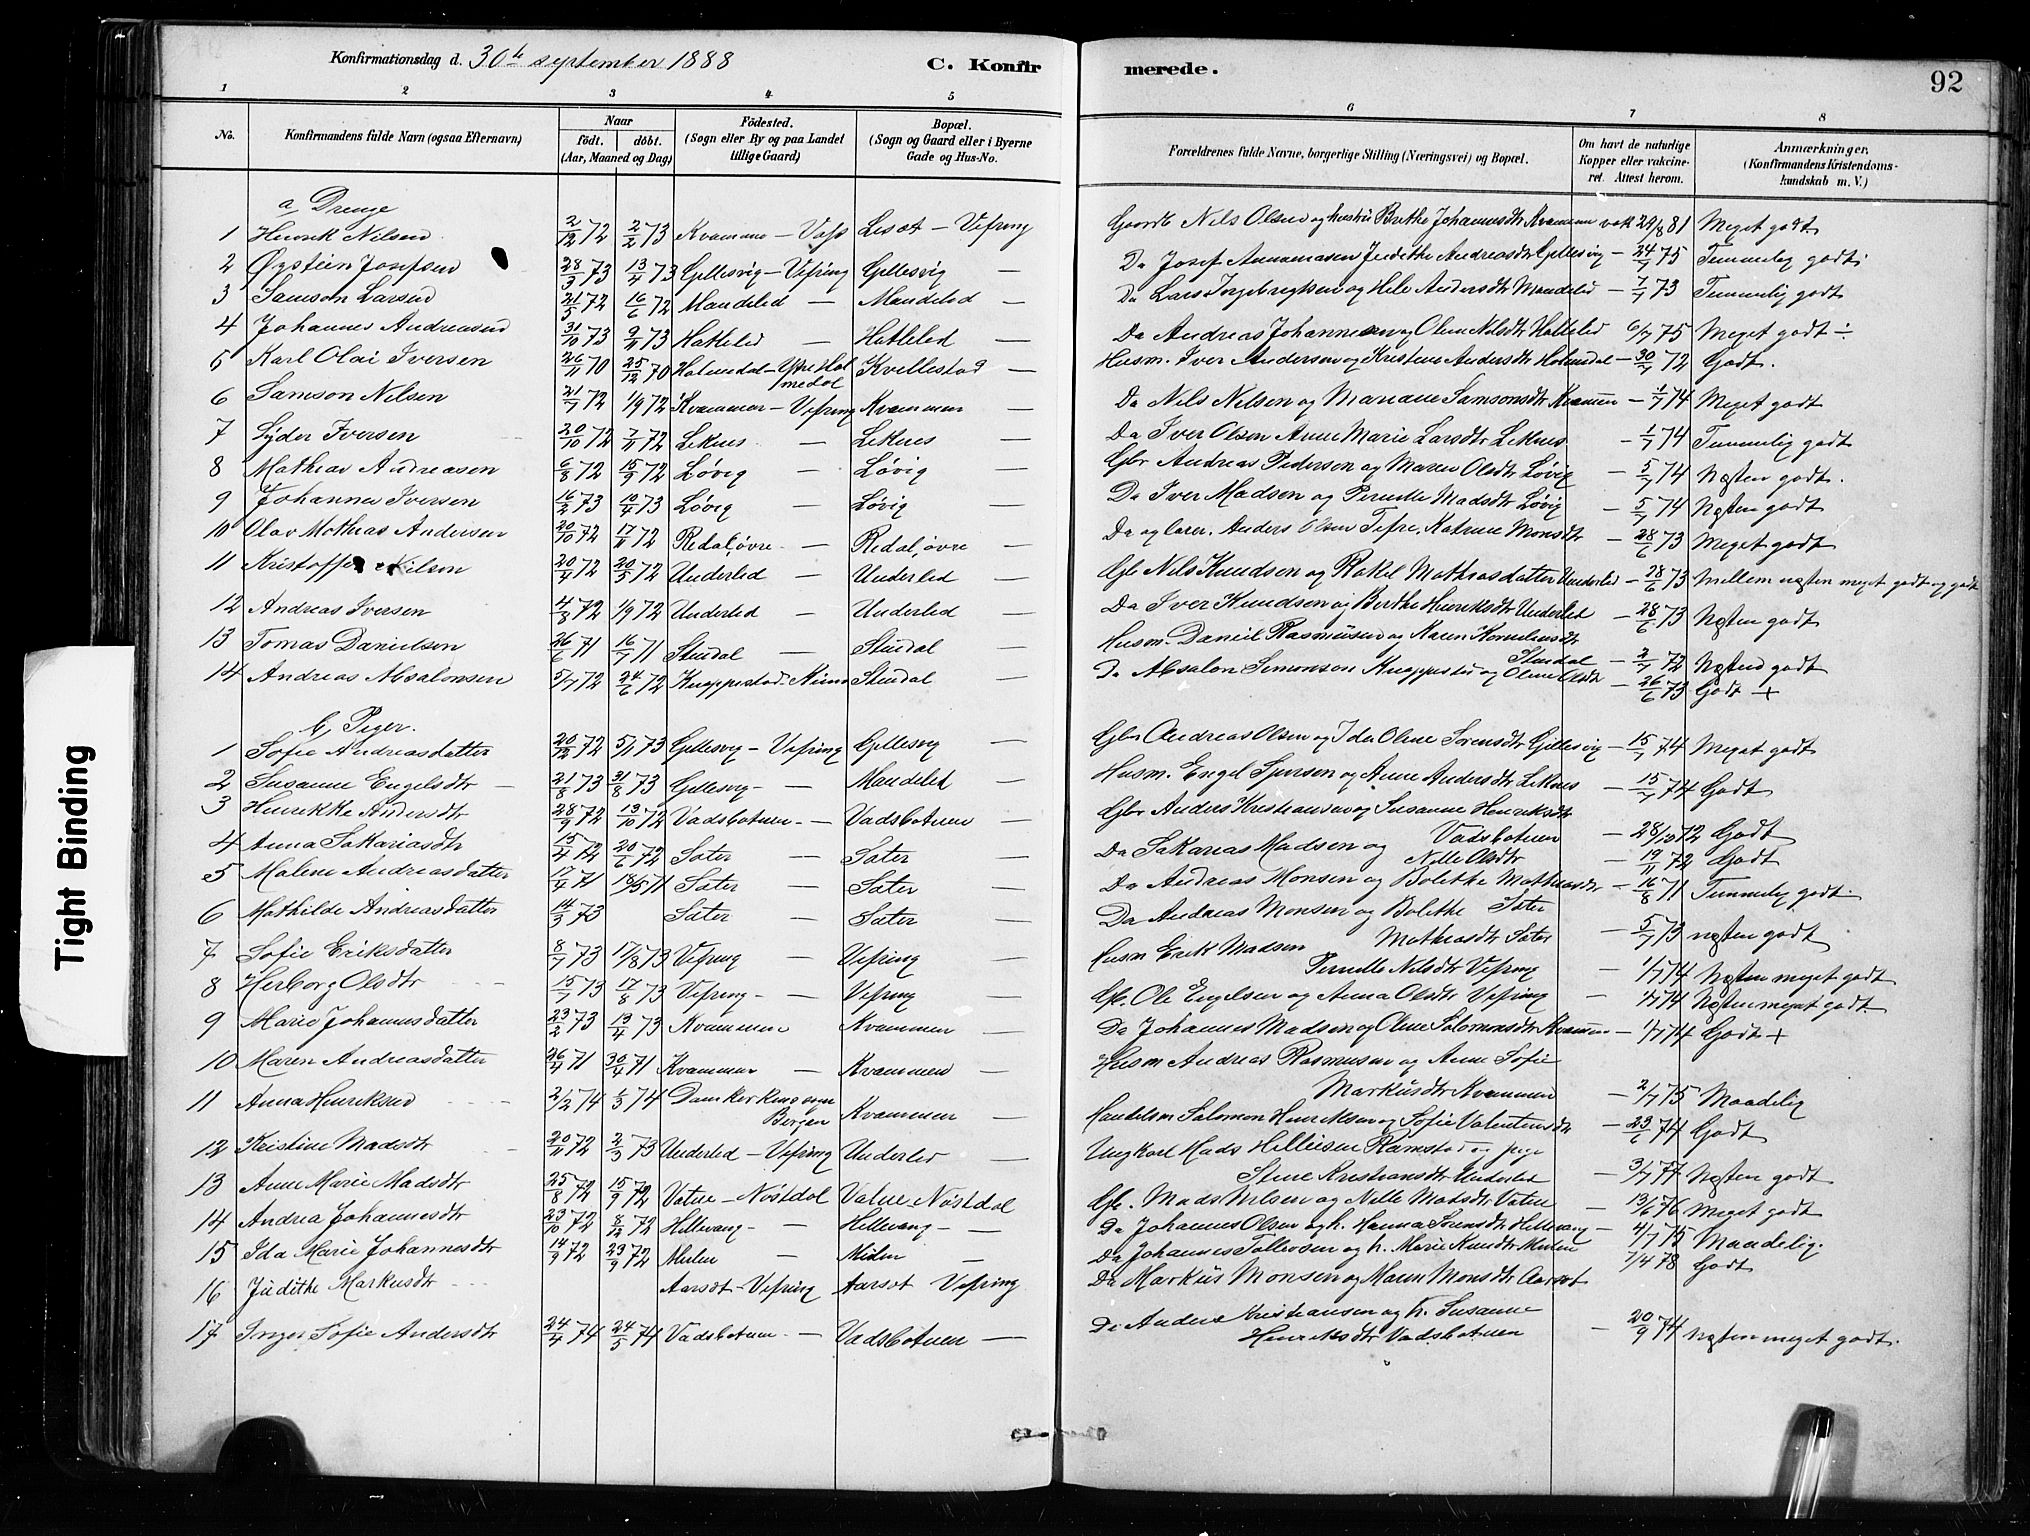 Konfirmationsdag d. 30te september 1888
C. Konfirmerede.
92
1 2 3 4 5 6 7 8
No.
Konfirmandens fulde Navn (ogsaa Efternavn)
Naar
födt. döbt.
(Aar, Maaned og Dag)
Födested.
(Sogn eller By og paa Landet tillige Gaard)
Bopæl.
(Sogn og Gaard eller i Byerne Gade og Hus-No.
Forældrenes fulde Navne, borgerlige Stilling (Næringsvei) og Bopæl.
Om havt de naturlige Kopper eller vakcineret. Attest herom.
Anmærkninger.
(Konfirmandens Kristendomskundskab m. V.)
a, Drenge
1 Henrik Nilsen 2/12 72 2/2 73 Kvammen Leset – Vefring Nils Olsen og hustru Brethe Johannesdtr Kvammen vak 29/8 81 Meget godt.
2 Øystein Josefsen 28/3 73 13/4 73 Gjellesvig – Vefring Gjellesvig – Do Josef 24/7 75 Temmelig godt.
3 Samson Larsen 21/5 72 16/6 72 Mandeled – Mandeled – Do Lars Ingebregtsen og Hele Andersdtr Mandeled – 7/7 73 Temmelig godt
4 Johannes Andreasen 31/10 73 9/11 73 Hatleled – Hatleled – Do Andreas Johannesen og Oline Nilsdtr Hatleled 6/7 75 Meget godt ÷
5 Karl Olai Iversen 26/11 70 25/12 70 Holmedal – Ytre Holmedal Kvellestad – Husm. Iver Andersen og Kristine Andersdtr Holmedal – 30/7 72 Godt.
6 Samson Nilsen 21/7 72 1/9 72 Kvammen – Vefring Kvammen – Do Nils Nilsen og Mariane Samsonsdtr Kvammen – 1/7 74 Meget godt
7 Sjder Iversen 20/10 72 7/11 72 Leknes – Leknes – Do Iver Olsen Anne Marie Larsdtr Leknes – 1/7 74 Temmelig godt
8 Mathias Andreasen 6/8 72 15/9 72 Løvig – Løvig – Gbr Andreas Pedersen og Maren Olsdtr Løvig – 5/7 74 Næsten godt.
9 Johannes Iversen 16/2 73 10/4 73 Løvig – Løvig – Do Iver Madsen og Pernille Madsdtr Løvig – 5/7 74 Næsten godt
10 Olav Mathias Andersen 20/10 72 17/11 72 Redal, øvre – Redal, øvre – Do og lærer. Anders Olsen Tefre, Katrine Monsdtr – 28/6 73 Meget godt
11 Kristoffer Nilsen 20/4 72 20/5 72 Underled – Underled – Gb Nils Knudsen og Rakel Mathiasdatter Underled – 28/6 73 mellem næsten meget godt og godt
12 Andreas Iversen 4/8 72 1/9 72 Underled – Underled – Do Iver Knudsen og Berthe Henriksdtr Underled – 28/6 73 Næsten godt
13 Tomas Danielsen 26/6 71 16/7 71 Stendal – Stendal – Husm. Daniel Rasmusen og Maren Korneliusdtr Stendal – 2/7 72 Næsten godt
14 Andreas Absalomsen 5/7 72 24/6 72 Knappestad – Stendal – Do Absalon Simonsen Knappestad og Oline Olsdtr – 26/6 73 Godt +
b, Piger.
1 Sofie Andreasdatter 20/12 72 5/1 73 Gjellesvig – Vefring Gjellesvig – Gbr Andreas Olsen og Ida Oline Sørensdtr Gjellesvig – 15/7 74 Meget godt
2 Susanne Engelsdtr – 21/8 73 31/8 73 Gjellesvig – Mandeled – Husm. Engel Iversen og Anne Andersdtr Leknes – 15/7 74 Godt
3 Henrikke Andersdtr 28/9 72 13/10 72 Vadsbotnen – Vadsbotnen – Gbr Anders Kristiansen og Susanne Henriksdtr Vadsbotnen – 28/10 72 Godt
4 Anna Sakariasdtr 15/4 72 20/6 72 Sæter – Sæter – Do Sakarias Madsen og Nille Olsdtr – 19/11 72 Godt
5 Malene Andreasdatter 17/4 71 18/5 71 Sæter – Sæter – Do Andreas Monsen og Bolethe Mathiasdtr Sæter – 16/8 71 Temmelig godt.
6 Mathilde Andreasdatter 14/3 73 Sæter – Sæter – Do Andreas Monsen og Bolethe Mathiasdtr Sæter – 5/7 73 næsten godt
7 Sofie Eriksdatter 8/7 73 17/8 73 Vefring – Vefring – Husm Erik Madsen Pernille Nilsdtr Vefring – 1/7 74 Næsten meget godt
8 Herborg Olsdtr 15/7 73 17/8 73 Vefring – Vefring – Gb. Ole Engelsen og Anna Olsdtr Vefring – 1/7 74 Næsten meget godt.
9 Marie Johannesdatter 23/2 73 13/4 73 Kvammen Kvammen – Do Johannes Madsen og Oline Salomonsdtr Kvammen – 1/7 74 Godt +
10 Maren Andreasdatter 26/4 71 30/4 71 Kvammen – Kvammen – Husm Andreas Rasmusen og Anne Sofie Markusdtr Kvammen – 2/7 75 Maadelig
11 Anna Henriksen 2/2 74 1/3 74 Domkirkens sogn Bergen Kvammen – Handelsm Salomon Henriksen og Sofie Valentinsdtr – 23/6 74 Godt
12 Kristine Madsdtr 20/11 72 2/3 73 Underled – Vefring Underled – Ungkarl Mads Helliesen Ramstad og pige Stine Kristiansdtr Underled – 3/7 77 Næsten godt
13 Anne Marie Madsdtr 25/8 72 15/9 72 Vatne – Nöstdal Vatne Nöstdal Gb. Mads Nilsen og Nille Madsdtr Vatne – 13/6 76 Meget godt
14 Andrea Johannesdtr 23/10 72 8/12 72 Hillevang – Hillevang – Do Johannes Olsen og h. Hanna Sørensdtr Hillevang – 4/7 75 Maadelig.
15 Ida Marie Johannesdtr 14/9 72 29/9 72 Mulen – Do Johannes Tollevsen og h. Marie Knudsdtr Mulen 7/4 78 Godt
16 Judithe Markusdtr Aarsæt – Vefring Aarset Vefring Do Markus Monsen og Maren Monsdtr Aarset
17 Inger Sofie Andersdtr 24/4 74 24/5 74 Vadsbotnen – Vadsbotnen – Do Anders Kristiansen og h. Susanne Henriksdtr Vadsbotnen – 20/9 74 næsten meget godt.
Tight Binding